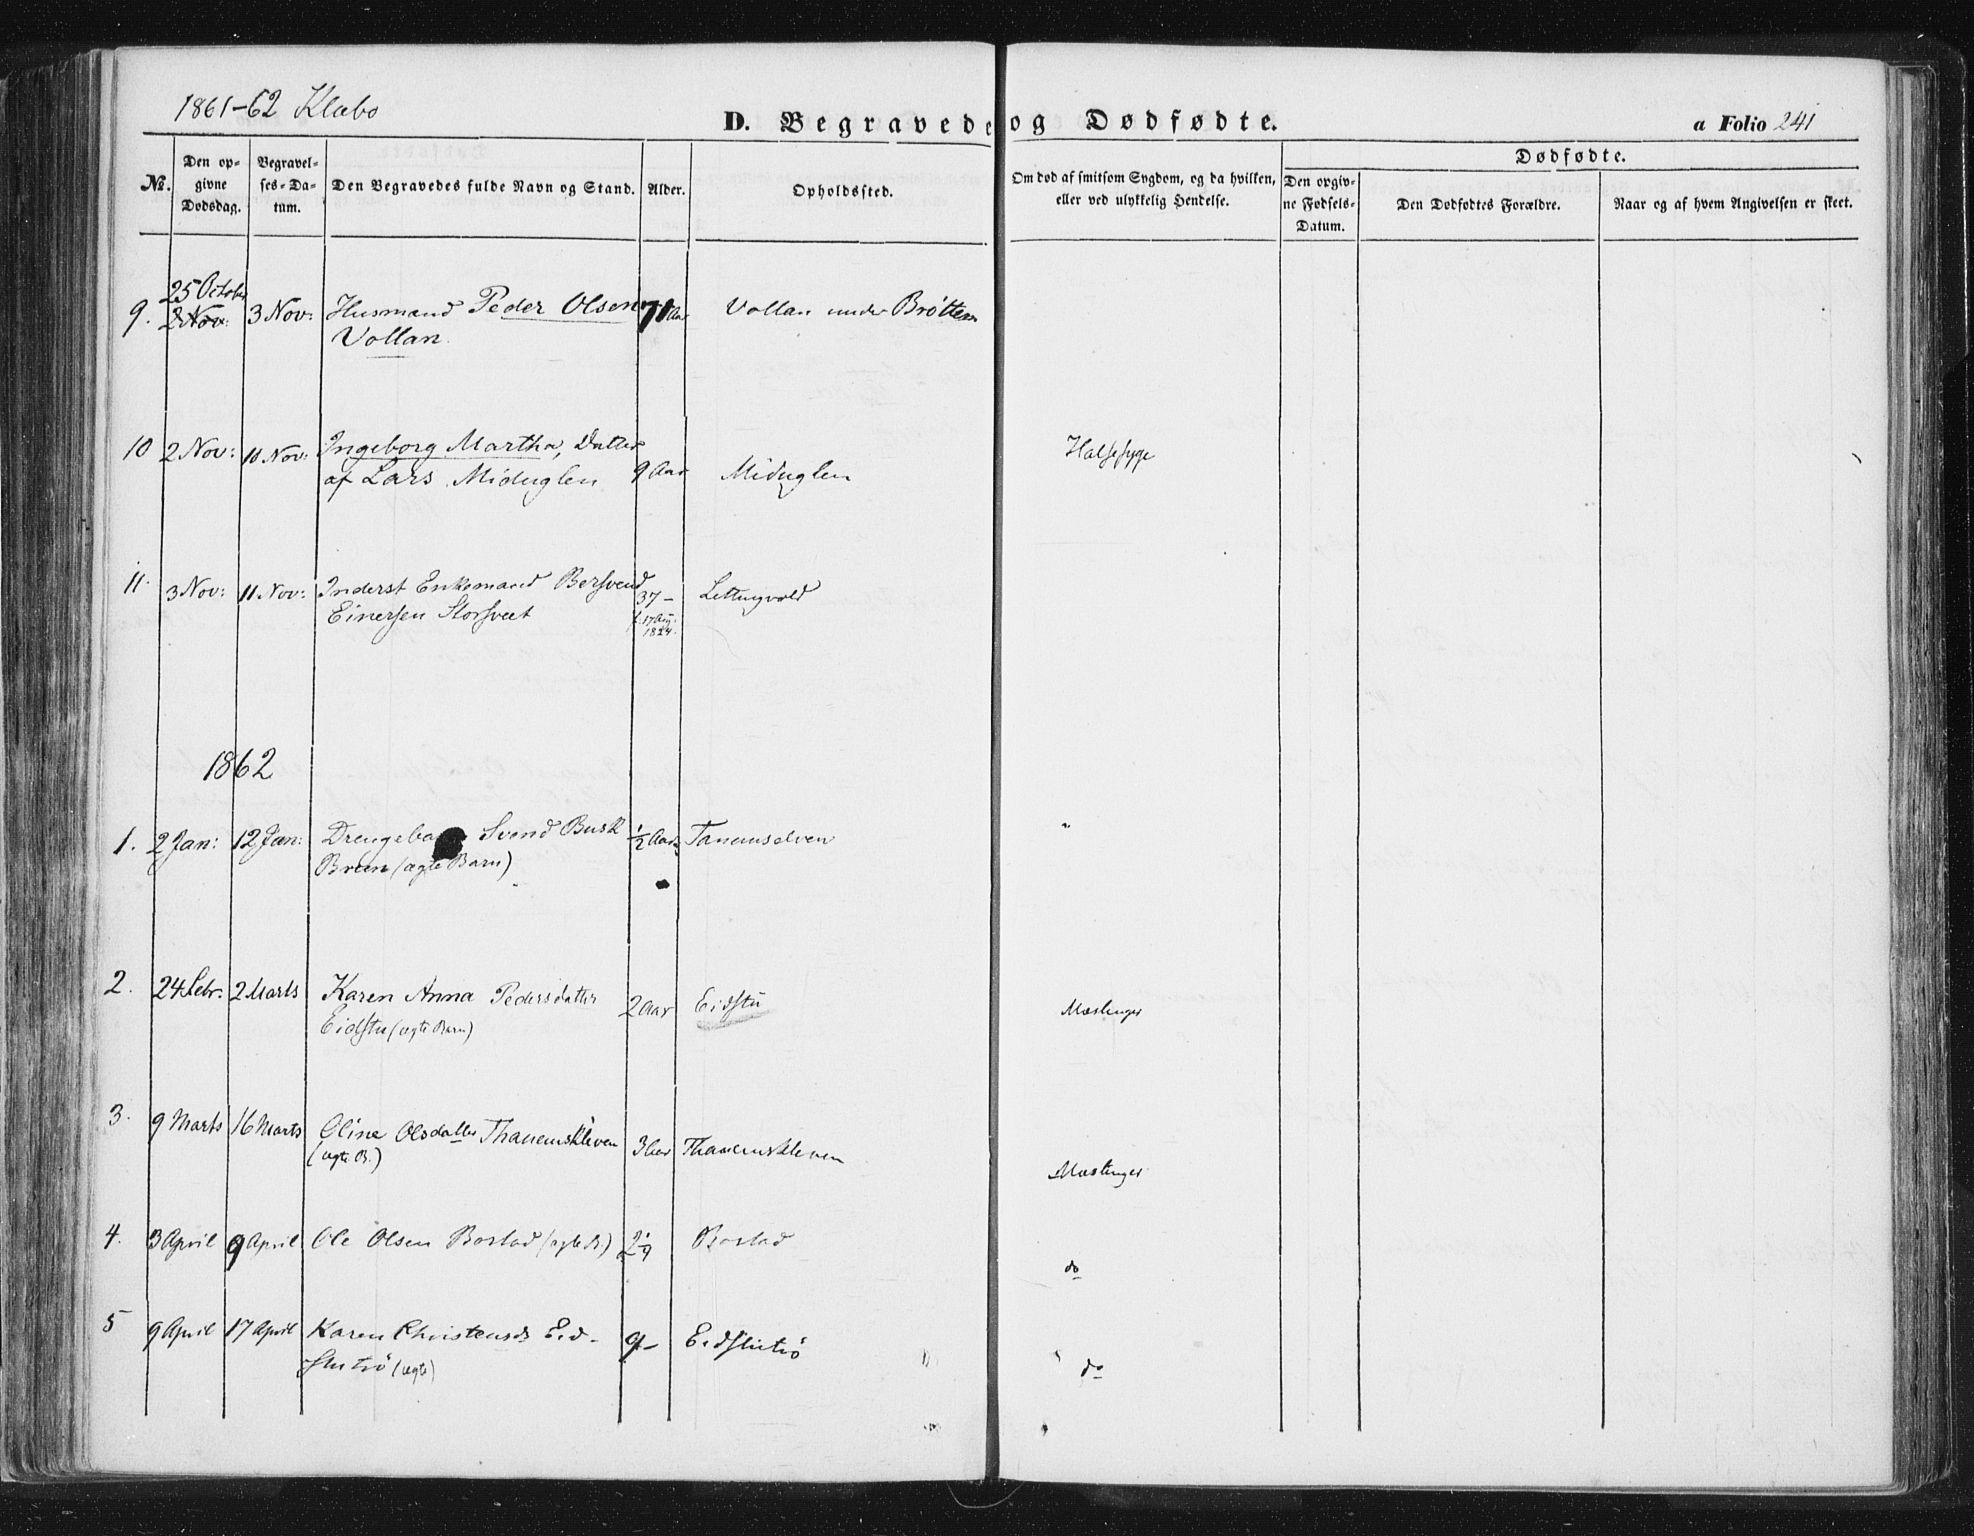 1861-62 Klæbo
D. Begravede og Dødfødte.
a Folio 241
No.
Den opgivne Dødsdag.
Begravelses-Datum.
Den Begravedes fulde Navn og Stand.
Alder.
Opholdssted.
Om død af smitsom Sygdom, og da hvilken, eller ved ulykkelig Hendelse.
Dødfødte.
Den opgivne Fødsels-Datum.
Den Dødfødtes Forældre.
Naar og af hvem Angivelsen er skeet.
25 October
9. 2 Nov: 3 Nov: Husmand Peder Olsen 71 Aar Vollan under Brøttem
Vollan.
10 2 Nov: 10 Nov: Ingeborg Martha, Datter
af Lars Miduglen 9 Aar Miduglen Halssyge
11. 3 Nov: 11 Nov: Inderst Enkemand Bersvend 37 -
Einersen Storsveet f. 17 Aug. 1824.
1862
1. 2 Jan: 12 Jan: Drengeba Svend Busk ½ Aar Tanemselven "
Bruun (ægte Barn)
2. 24 Febr. 2 Marts Karen Anna Pedersdatter 2 Aar Eidstu Mæslinger
Eidstu (ægte Barn)
3. 9 Marts 16 Marts Oline Olsdatter Thanemskleven 3 Aar Thanemskleven Mæslinger
(ægte B.)
4. 3 April 9 April Ole Olsen Bostad (ægte B.) Bostad do
5 9 April 17 April Karen Christensd: Eid- 9 - Eidstutrø do
stutrø (ægte)